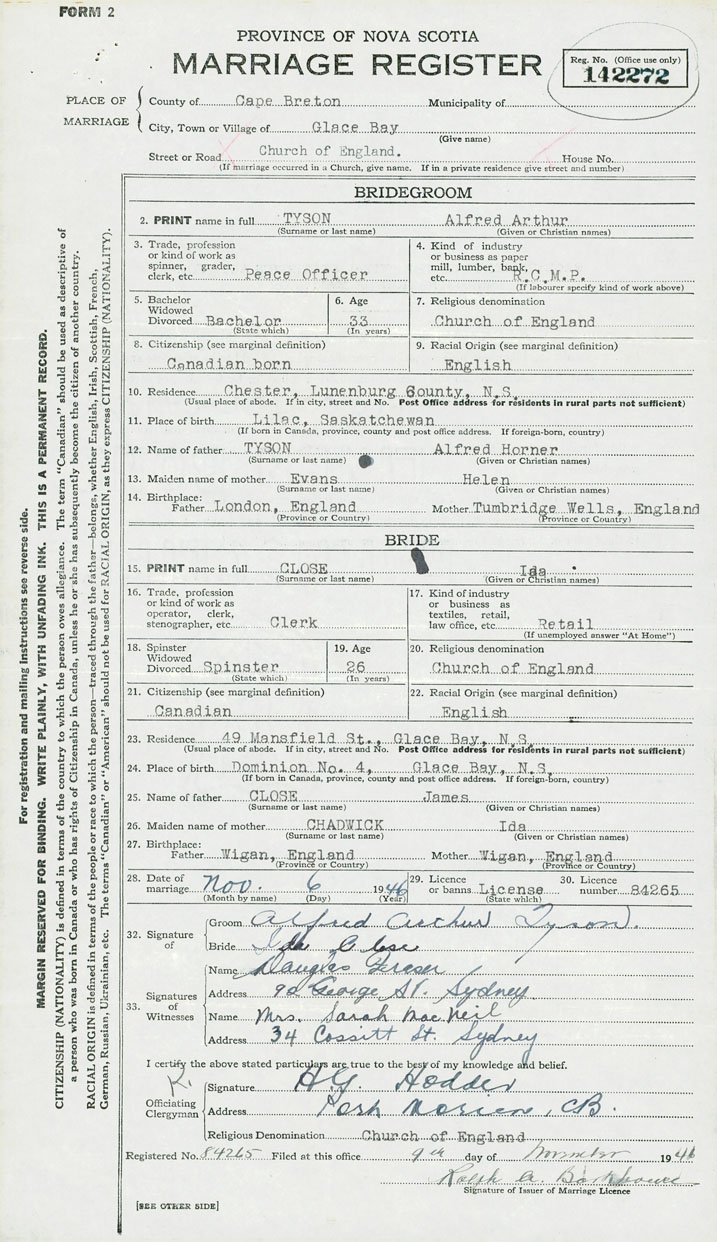 FORM 2
PROVINCE OF NOVA SCOTIA
MARRIAGE REGISTER
Reg. No. (Office use only)
142272
PLACE OF MARRIAGE
County of Cape Breton Municipality of
City, Town or Village of Glace Bay
(Give name)
Street or Road Church of England. House No.
(If marriage occurred in a Church, give name. If in a private residence give street and number)
BRIDEGROOM
2. PRINT name in full TYSON Alfred Arthur
(Surname or last name) (Given or Christian names)
3. Trade, profession or kind of work as spinner, grader, clerk, etc. Peace Officer
4. Kind of industry or business as paper mill, lumber, bank, etc. R.C.M.P.
(If labourer specify kind of work above)
5. Bachelor Widowed Divorced Bachelor
(State which)
6. Age 33
(In years)
7. Religious denomination
Church of England
8. Citizenship (see marginal definition)
Canadian born
9. Racial Origin (see marginal definition)
English
10. Residence Chester, Lunenburg County, N.S.
(Usual place of abode. If in city, street and No. Post Office address for residents in rural parts not sufficient)
11. Place of birth Lilac, Saskatchewan
(If born in Canada, province, county and post office address. If foreign-born, country)
12. Name of father TYSON Alfred Horner
(Surname or last name) (Given or Christian names)
13. Maiden name of mother Evans Helen
(Surname or last name) (Given or Christian names)
14. Birthplace:
Father London, England Mother Tumbridge Wells, England
(Province or Country) (Province or Country)
BRIDE
15. PRINT name in full CLOSE Ida
(Surname or last name) (Given or Christian names)
16. Trade, profession or kind of work as operator, clerk, stenographer, etc. Clerk
17. Kind of industry or business as textiles, retail, law office, etc. Retail
(If unemployed answer "At Home")
18. Spinster Widowed Divorced Spinster
(State which)
19. Age 26
(In years)
20. Religious denomination
Church of England
21. Citizenship (see marginal definition)
Canadian
22. Racial Origin (see marginal definition)
English
23. Residence 49 Mansfield St., Glace Bay, N.S.
(Usual place of abode. If in city, street and No. Post Office address for residents in rural parts not sufficient)
24. Place of birth Dominion No. 4, Glace Bay, N.S.
(If born in Canada, province, county and post office address. If foreign-born, country)
25. Name of father CLOSE James
(Surname or last name) (Given or Christian names)
26. Maiden name of mother CHADWICK Ida
(Surname or last name) (Given or Christian names)
27. Birthplace:
Father Wigan, England Mother Wigan, England
(Province or Country) (Province or Country)
28. Date of marriage Nov. 6 1946
(Month by name) (Day) (Year)
29. Licence or banns License
(State which)
30. Licence number 84265
32. Signature of
Groom Alfred Arthur Tyson.
Bride Ida Close
33. Signatures of Witnesses
Name Douglas Fraser
Address 90 George St. Sydney
Name Mrs. Sarah MacNeil
Address 34 Cossitt St. Sydney
I certify the above stated particulars are true to the best of my knowledge and belief.
Officiating Clergyman
Signature HG Hodder
Address Port Morien, CB.
Religious Denomination Church of England
Registered No. 84265 Filed at this office 9th day of November 1946
Ralph A.
Signature of Issuer of Marriage Licence
[SEE OTHER SIDE]
For registration and mailing instructions see reverse side.
MARGIN RESERVED FOR BINDING. WRITE PLAINLY, WITH UNFADING INK. THIS IS A PERMANENT RECORD.
CITIZENSHIP (NATIONALITY) is defined in terms of the country to which the person owes allegiance. The term "Canadian" should be used as descriptive of
a person who was born in Canada or who has rights of Citizenship in Canada, unless he or she has subsequently become the citizen of another country.
RACIAL ORIGIN is defined in terms of the people or race to which the person—traced through the father—belongs, whether English, Irish, Scottish, French,
German, Russian, Ukrainian, etc. The terms "Canadian" or "American" should not be used for RACIAL ORIGIN, as they express CITIZENSHIP (NATIONALITY).